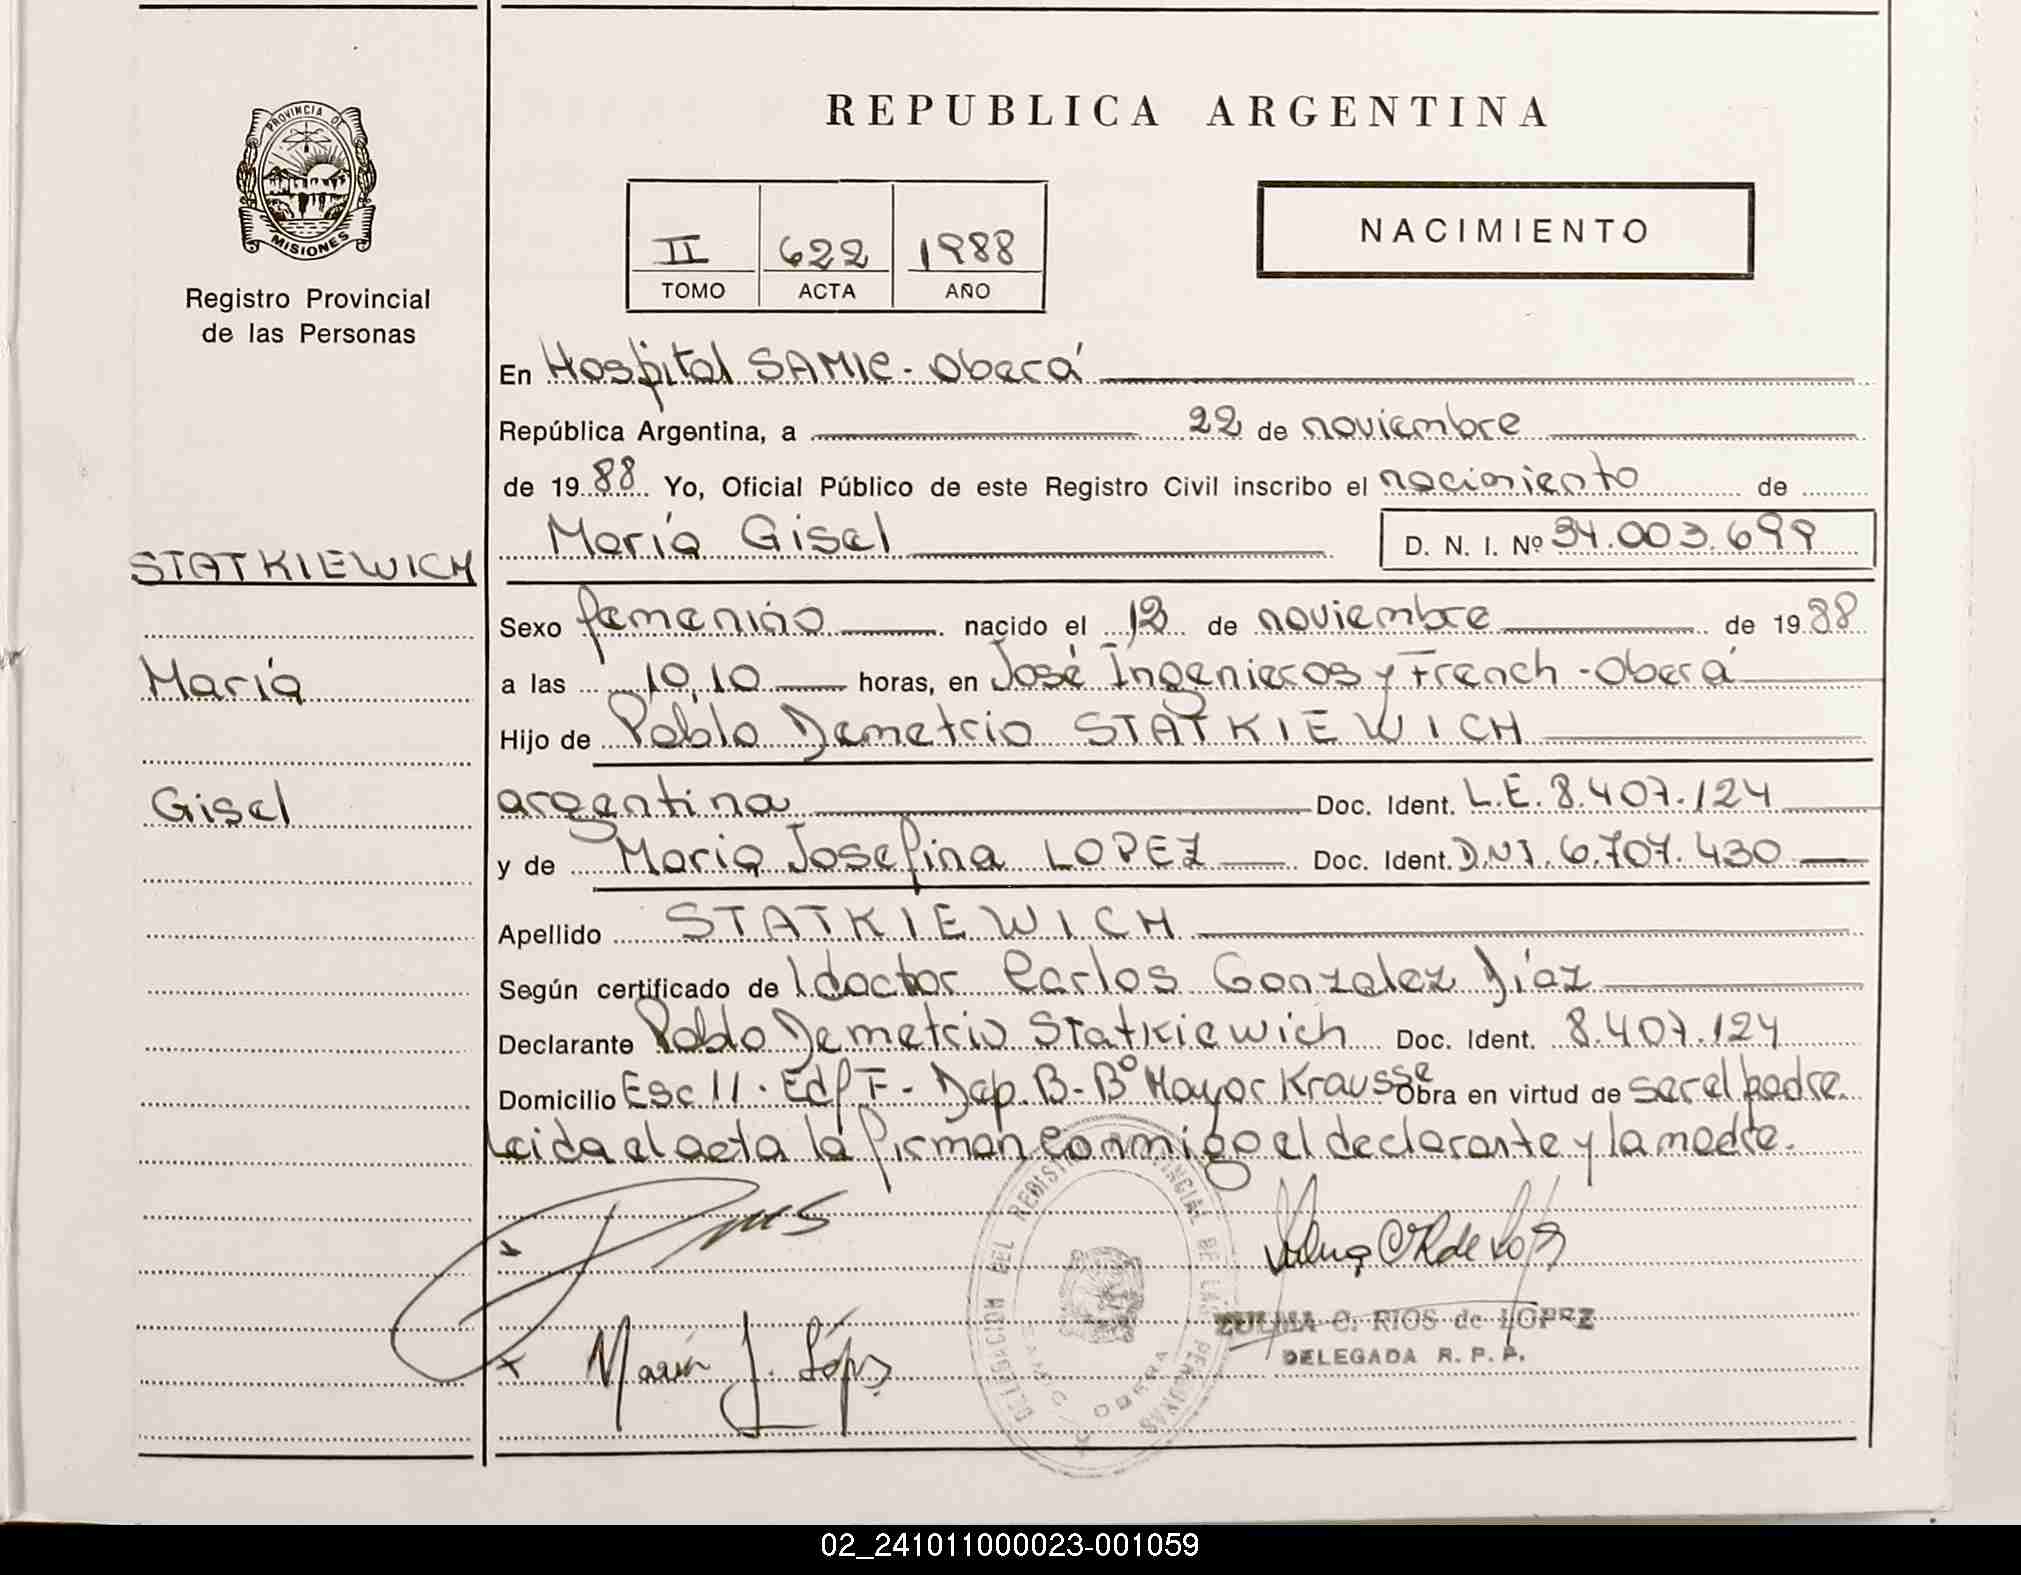 PROVINCIA DE
MISIONES
Registro Provincial
de las Personas
STATKIEWICH
María
Gisel
REPUBLICA ARGENTINA
II 622 1988
TOMO ACTA AÑO
NACIMIENTO
En Hospital SAMIC - Oberá
República Argentina, a 22 de noviembre
de 1988 Yo, Oficial Público de este Registro Civil inscribo el nacimiento de
María Gisel D. N. I. Nº 34.003.699
Sexo femenino nacido el 12 de noviembre de 1988
a las 10,10 horas, en José Ingenieros y French - Oberá
Hijo de Pablo Demetrio STATKIEWICH
argentina Doc. Ident. L.E. 8.407.124
y de María Josefina LOPEZ Doc. Ident. D.N.I. 6.707.430
Apellido STATKIEWICH
Según certificado de l doctor Carlos Gonzalez Díaz
Declarante Pablo Demetrio Statkiewich Doc. Ident. 8.407.124
Domicilio Esc 11 - Edf F - Dep. B - Bº Mayor Krausse Obra en virtud de ser el padre.
Leida el acta la firman conmigo el declarante y la madre.
DELEGACION DEL REGISTRO PROVINCIAL DE LAS PERSONAS
OBERA
María J. López
ZULMA C. RIOS de LOPEZ
DELEGADA R. P. P.
02_241011000023-001059